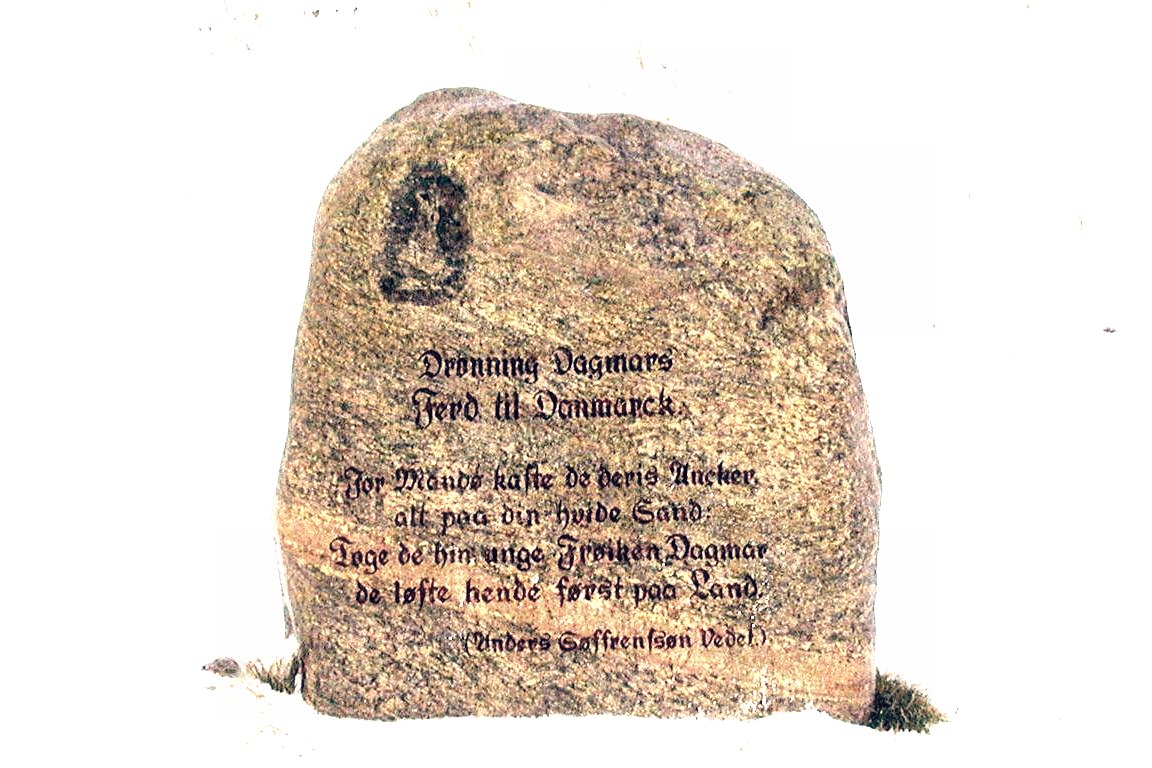 Drønning Dagmars
Ferd til Danmarck.
For Mandø kaste de deris Ancker,
alt paa din hvide Sand:
Toge de hin unge Frøiken Dagmar
de løfte hende først paa Land.
(Anders Søffrenssøn Vedel.)